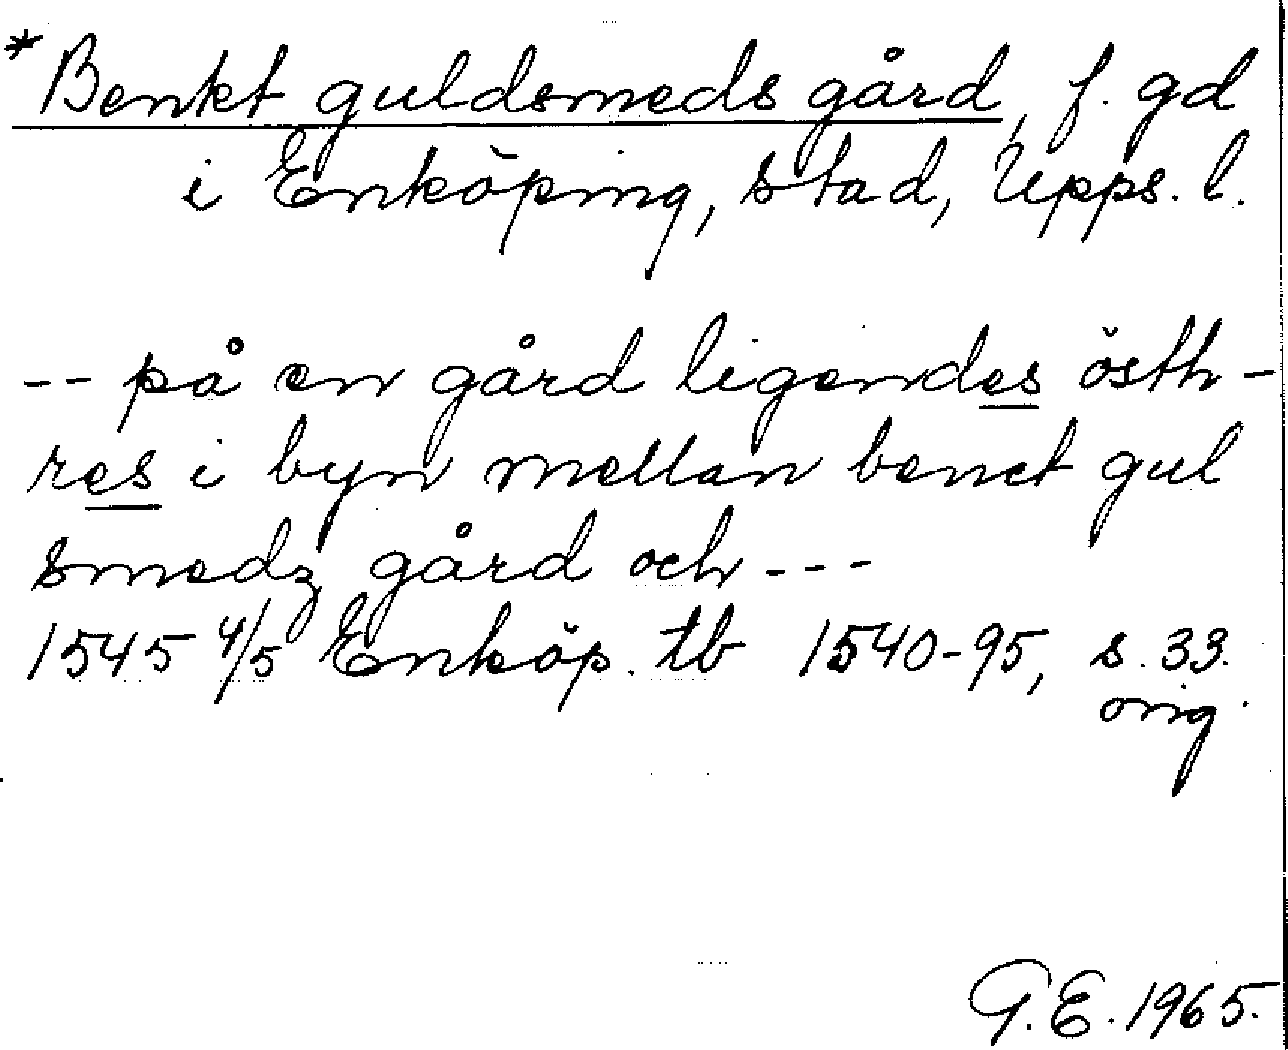 *Benkt guldsmeds gård, f. gd
i Enköping, stad, Upps. l.
-- på en gård ligendes östh-
res i byn mellan benct gul
smedz gård och ---
1545 4/5 Enköp. tb 1540-95, s. 33.
orig.
G.E. 1965.